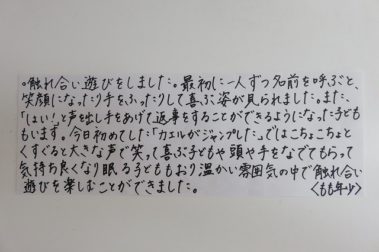 ○触れ合い遊びをしました。最初に一人ずつ名前を呼ぶと、
笑顔になったり手をふったりして喜ぶ姿が見られました。また、
「はい!」と声を出し手をあげて返事をすることができるようになった子ども
もいます。今日初めてした「カエルがジャンプした」ではこちょこちょと
くすぐると大きな声で笑って喜ぶ子どもや頭や手をなでてもらって
気持ち良くなり眠る子どももおり温かい雰囲気の中で触れ合い
遊びを楽しむことができました。
<もも年少>